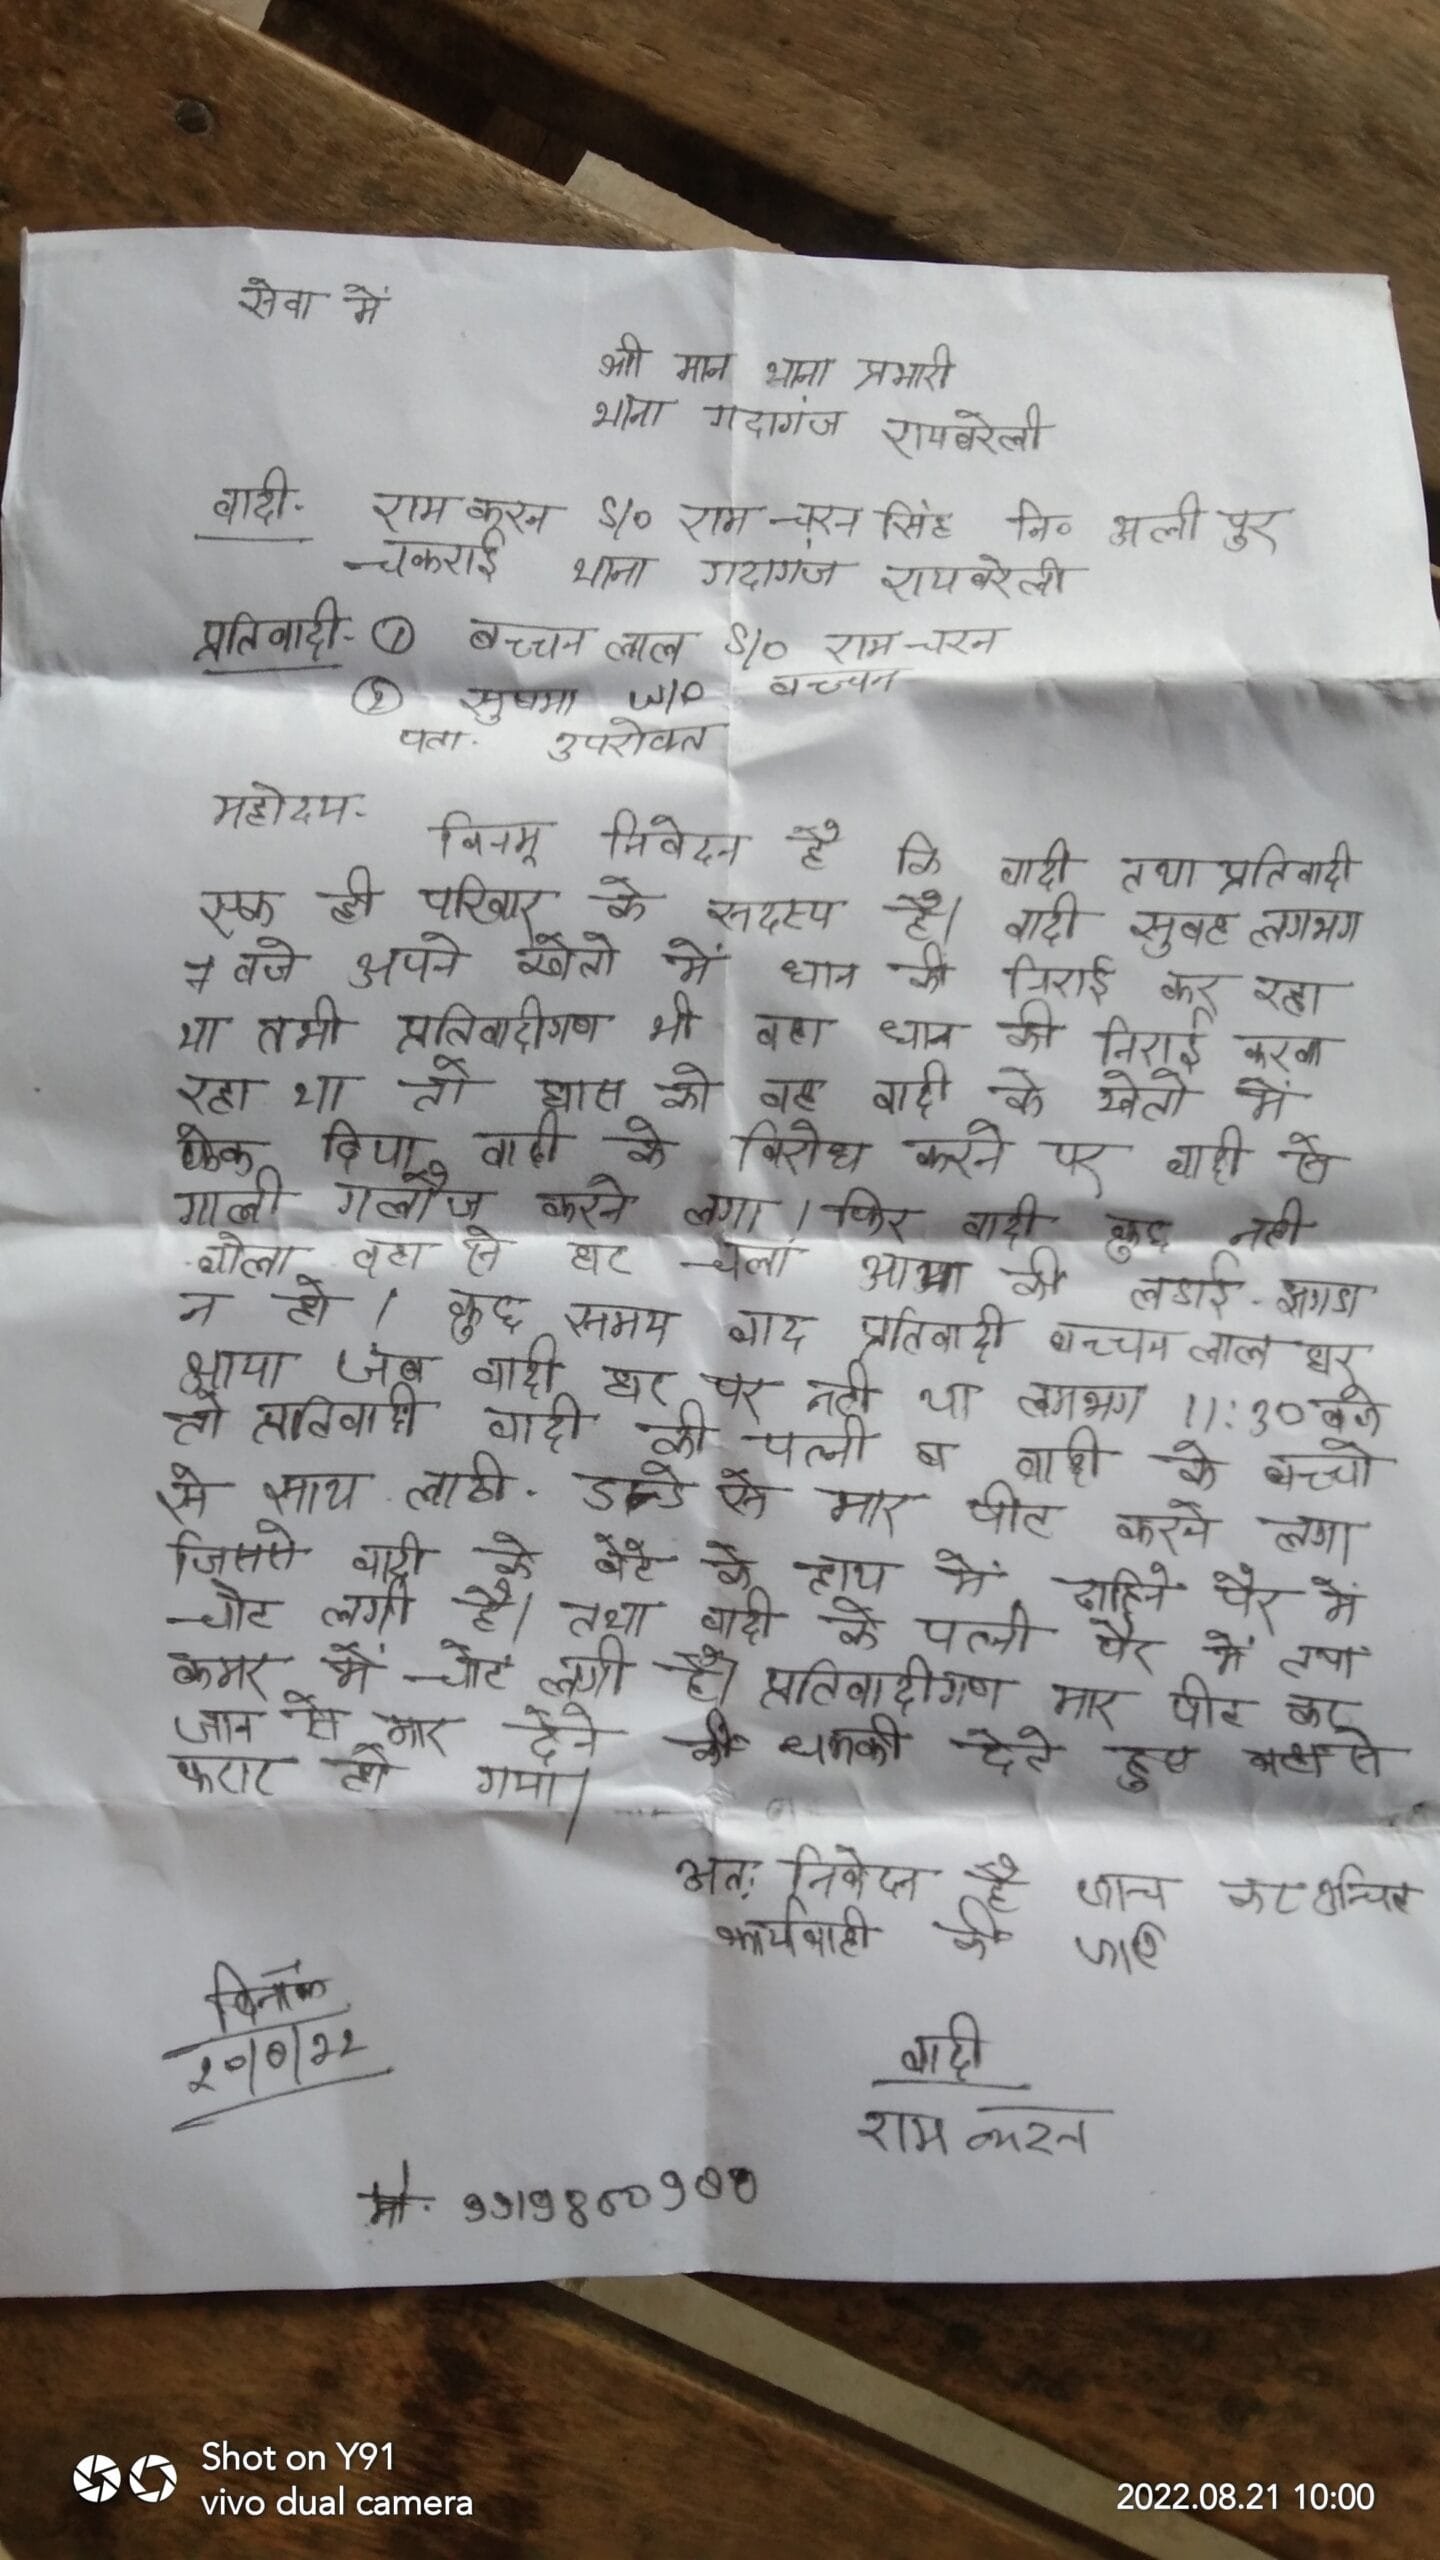 सेवा में
श्री मान थाना प्रभारी
थाना गदागंज रायबरेली
वादी- राम करन S/o राम चरन सिंह नि० अलीपुर
चकराई थाना गदागंज रायबरेली
प्रतिवादी- ① बच्चन लाल S/o राम चरन
② सुषमा W/O बच्चन
पता- उपरोक्त
महोदय-
विनम्र निवेदन है कि वादी तथा प्रतिवादी
एक ही परिवार के सदस्य है। वादी सुबह लगभग
बजे अपने खेतो में धान की निराई कर रहा
था तभी प्रतिवादीगण भी वहा धान की निराई करवा
रहा था तो घास को वह वादी के खेतो में
फेक दिया वादी के विरोध करने पर वादी से
गाली गलौज करने लगा। फिर वादी कुछ नही
बोला वहा से घर चला आया की लडाई-झगडा
न हो। कुछ समय बाद प्रतिवादी बच्चन लाल घर
आया जब वादी घर पर नही था लगभग 11:30 बजे
तो प्रतिवादी वादी की पत्नी व वादी के बच्चो
से साथ लाठी-डन्डे से मार पीट करने लगा
जिससे वादी के बेटे के हाथ में दाहिने पैर में
चोट लगी है। तथा वादी के पत्नी पैर में तथा
कमर में चोट लगी है। प्रतिवादीगण मार पीट कर
जान से मार देने की धमकी देते हुए वहा से
फरार हो गया।
अतः निवेदन है जाच कर उचित
कार्यवाही की जाए
दिनांक
20/8/22
वादी
राम करन
मो.
Shot on Y91
vivo dual camera
2022.08.21 10:00